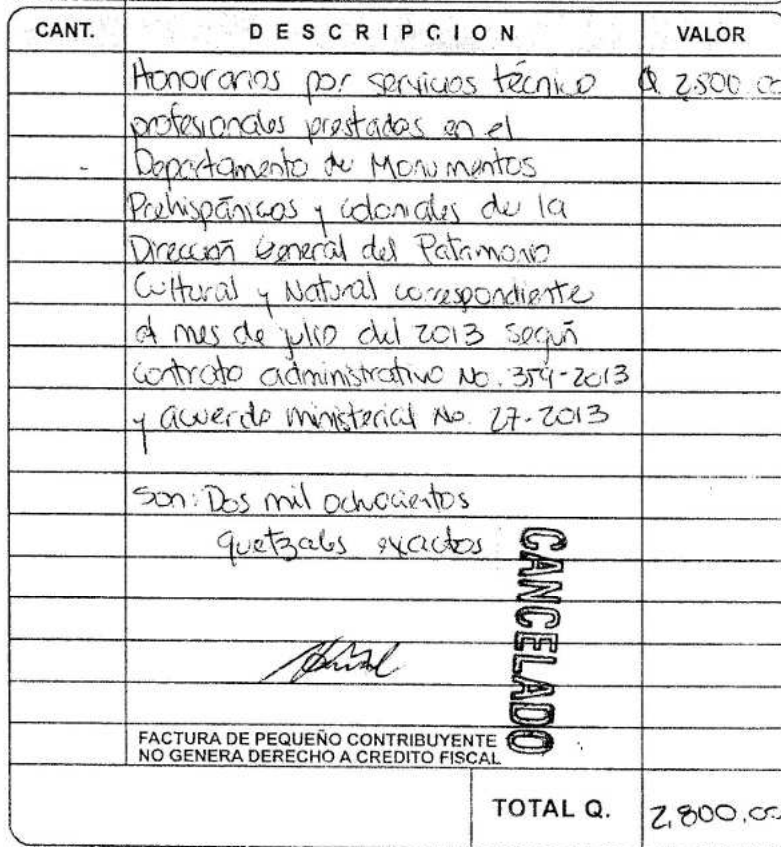 CANT. DESCRIPCION VALOR
Honorarios por servicios técnico Q 2.800.00
profesionales prestados en el
Departamento de Monumentos
Prehispánicos y coloniales de la
Dirección General del Patrimonio
Cultural y Natural correspondiente
al mes de julio del 2013 según
contrato administrativo No. 354-2013
y acuerdo ministerial No. 27-2013
Son: Dos mil ochocientos
quetzales exactos
CANCELADO
FACTURA DE PEQUEÑO CONTRIBUYENTE
NO GENERA DERECHO A CREDITO FISCAL
TOTAL Q. 2,800.00